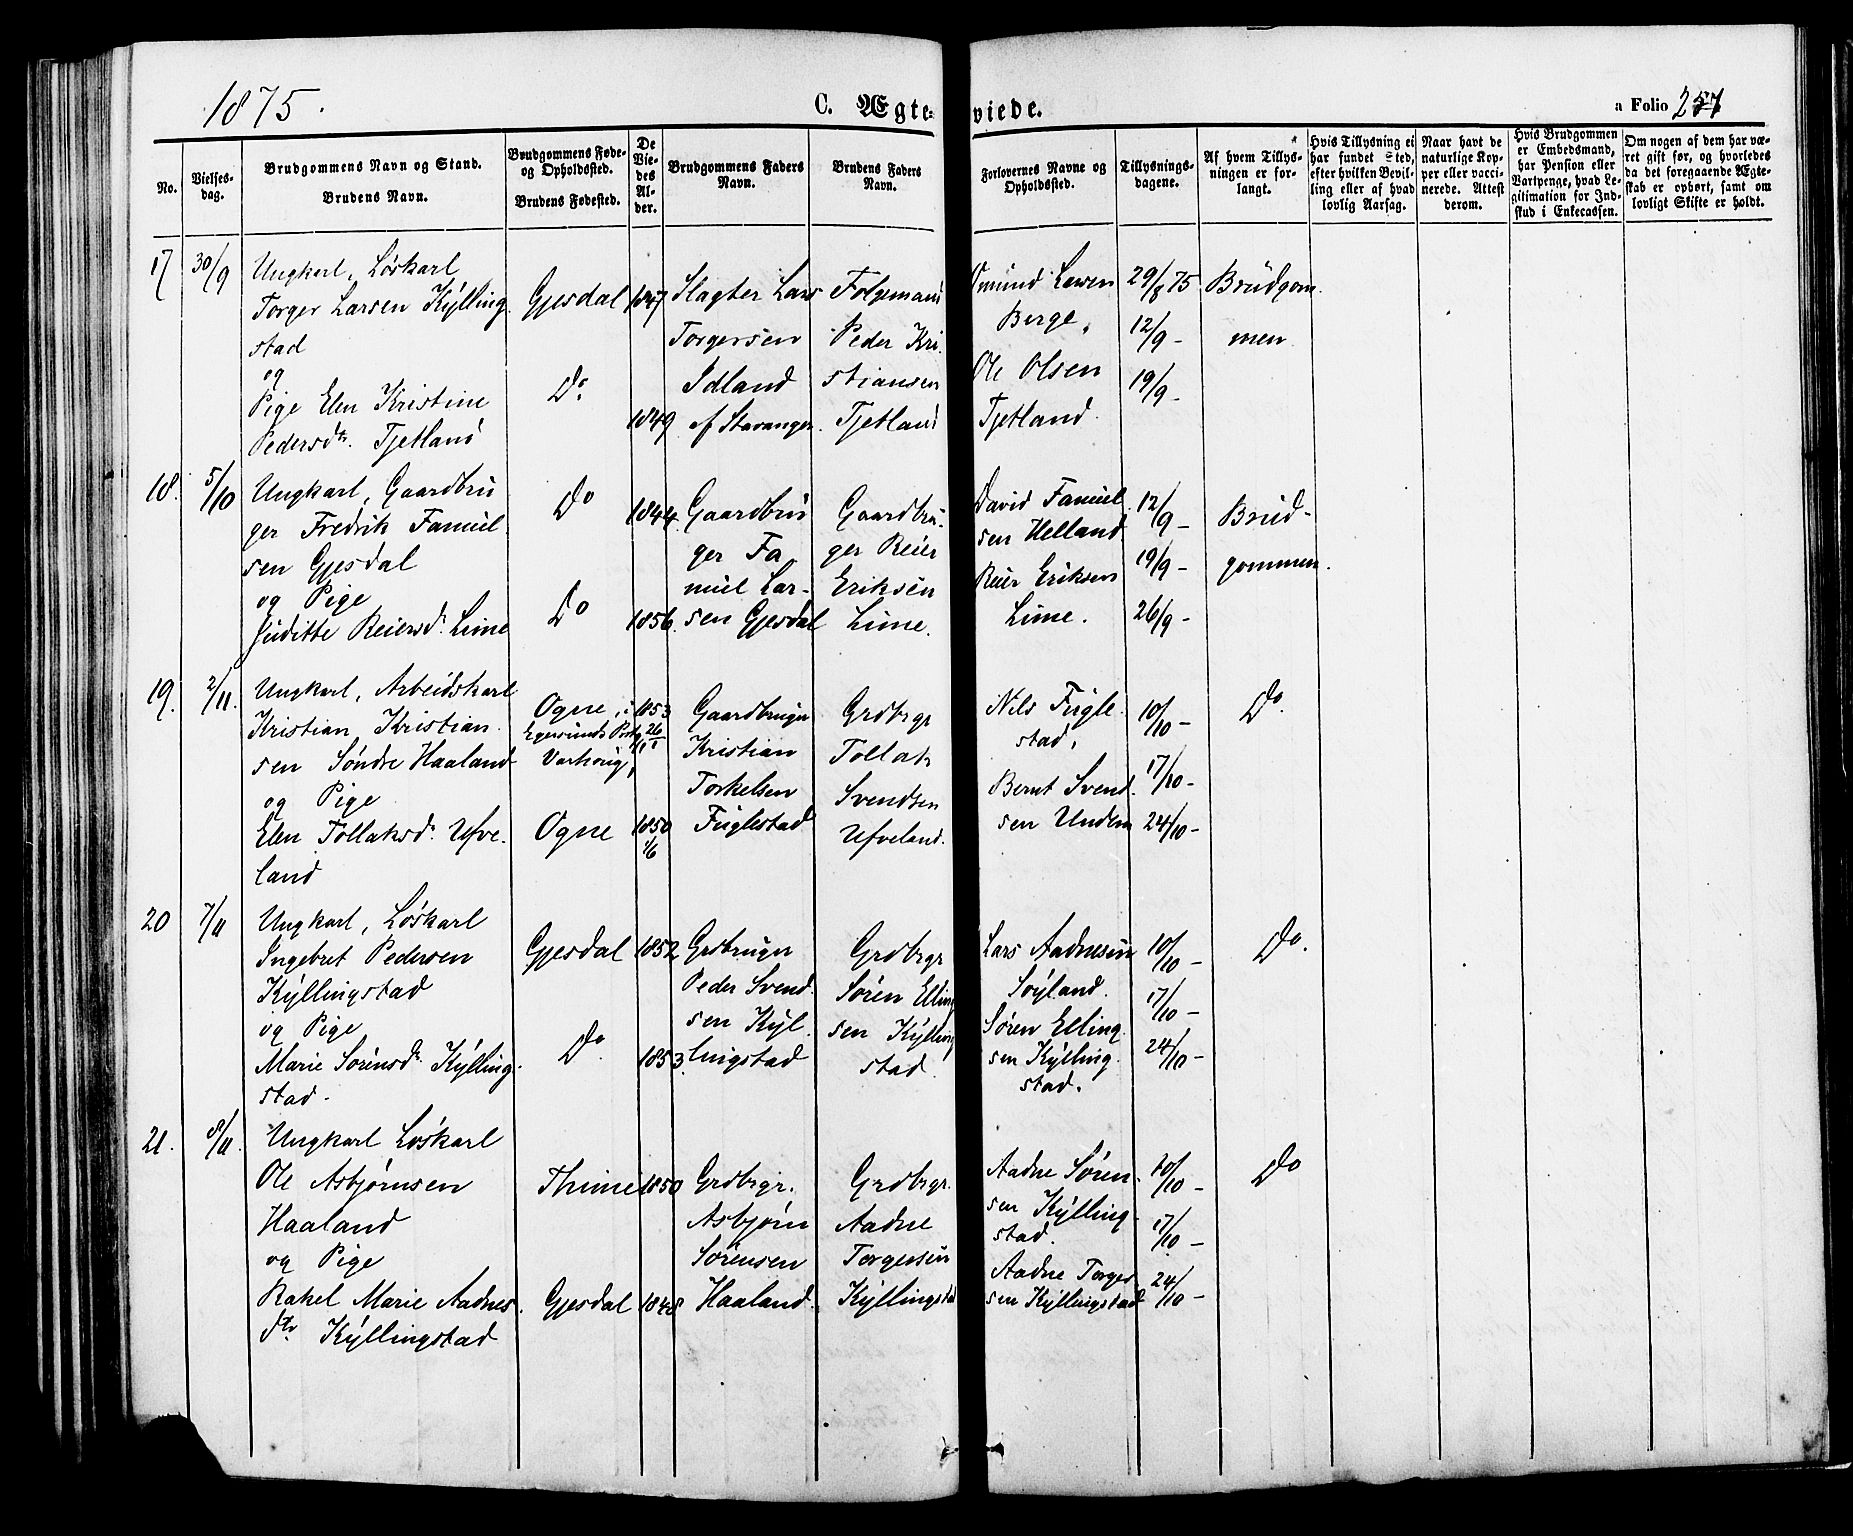 1875.
C. Ægte- viede.
a Folio 257
No.
Vielses-
dag.
Brudgommens Navn og Stand.
Brudens Navn.
Brudgommens Føde-
og Opholdsted.
Brudens Fødested.
De
Vie-
des
Al-
der.
Brudgommens Faders
Navn.
Brudens Faders
Navn.
Forlovernes Navne og
Opholdsted.
Tillysnings-
dagene.
Af hvem Tillys-
ningen er for-
langt.
Hvis Tillysning ei
har fundet Sted,
efter hvilken Bevil-
ling eller af hvad
lovlig Aarsag.
Naar havt de
naturlige Kop-
per eller vacci-
nerede. Attest
derom.
Hvis Brudgommen
er Embedsmand,
har Pension eller
Vartpenge, hvad Le-
gitimation for Ind-
skud i Enkecassen.
Om nogen af dem har væ-
ret gift før, og hvorledes
da det foregaaende Ægte-
skab er ophørt, samt om
lovligt Skifte er holdt.
17
30/9
Ungkarl, Løskarl
Torger Larsen Kÿlling
stad
og
Pige Elen Kristine
Pedersdtr. Tjetland
Gjesdal
Do
1847
1849
Slagter Lars
Torgersen
Idland
af Stavanger.
Folgemand
Peder Kri
stiansen
Tjetland
Omund Larsen
Berge,
Ole Olsen
Tjetland.
29/8 75
12/9 -
19/9 -
Brudgom
men
18.
5/10
Ungkarl, Gaardbru
ger Fredrik Famuel
sen Gjesdal
og Pige
Juditte Reiersd. Lime
Do
Do
1844.
1856.
Gaardbru
ger Fa
muel Lar-
sen Gjesdal
Gaardbru-
ger Reier
Eriksen
Lime.
David Famuel
sen Helland
Reier Eriksen
Lime.
12/9 -
19/9 -
26/9 -
Brud-
gommen.
19.
2/11.
Ungkarl, Arbeidskarl
Kristian Kristian
sen Søndre Haaland
og Pige
Elen Tollaksd. Ufve-
land
Ogne, i
Egersunds
Varhoug,
Ogne
1853
1850
1/6
Gaardbruger
Kristian
Torkelsen
Fuglestad
Grdbrgr
Tollak
Svendsen
Ufveland.
Nils Fugle
stad,
Bernt Svend
sen
10/10 -
17/10 -
24/10 -
Do.
20
7/11
Ungkarl, Løskarl
Ingebret Pedersen
Kÿllingstad
og Pige
Marie Sørensd. Kÿlling
stad.
Gjesdal
Do
1852
1853.
Grdbruger
Peder Svend
sen Kÿl
lingstad
Grdbrgr
Søren Elling
sen Kÿlling
stad.
Lars Aadnesen
Søÿland.
Søren Elling
sen Kÿlling
stad.
10/10 -
17/10 -
24/10 -
Do.
21.
8/11.
Ungkarl Løskarl
Ole Asbjørnsen
Haaland
og Pige
Rakel Marie Aadnes
dtr. Kÿllingstad
Thime
Gjesdal
1850
1848
Grdbrgr.
Asbjørn
Sørensen
Haaland.
Grdbrgr.
Aadne
Torgersen
Kÿllingstad
Aadne Søren
sen Kÿlling
stad.
Aadne Torger
sen Kÿllingstad
10/10 -
17/10 -
24/10 -
Do